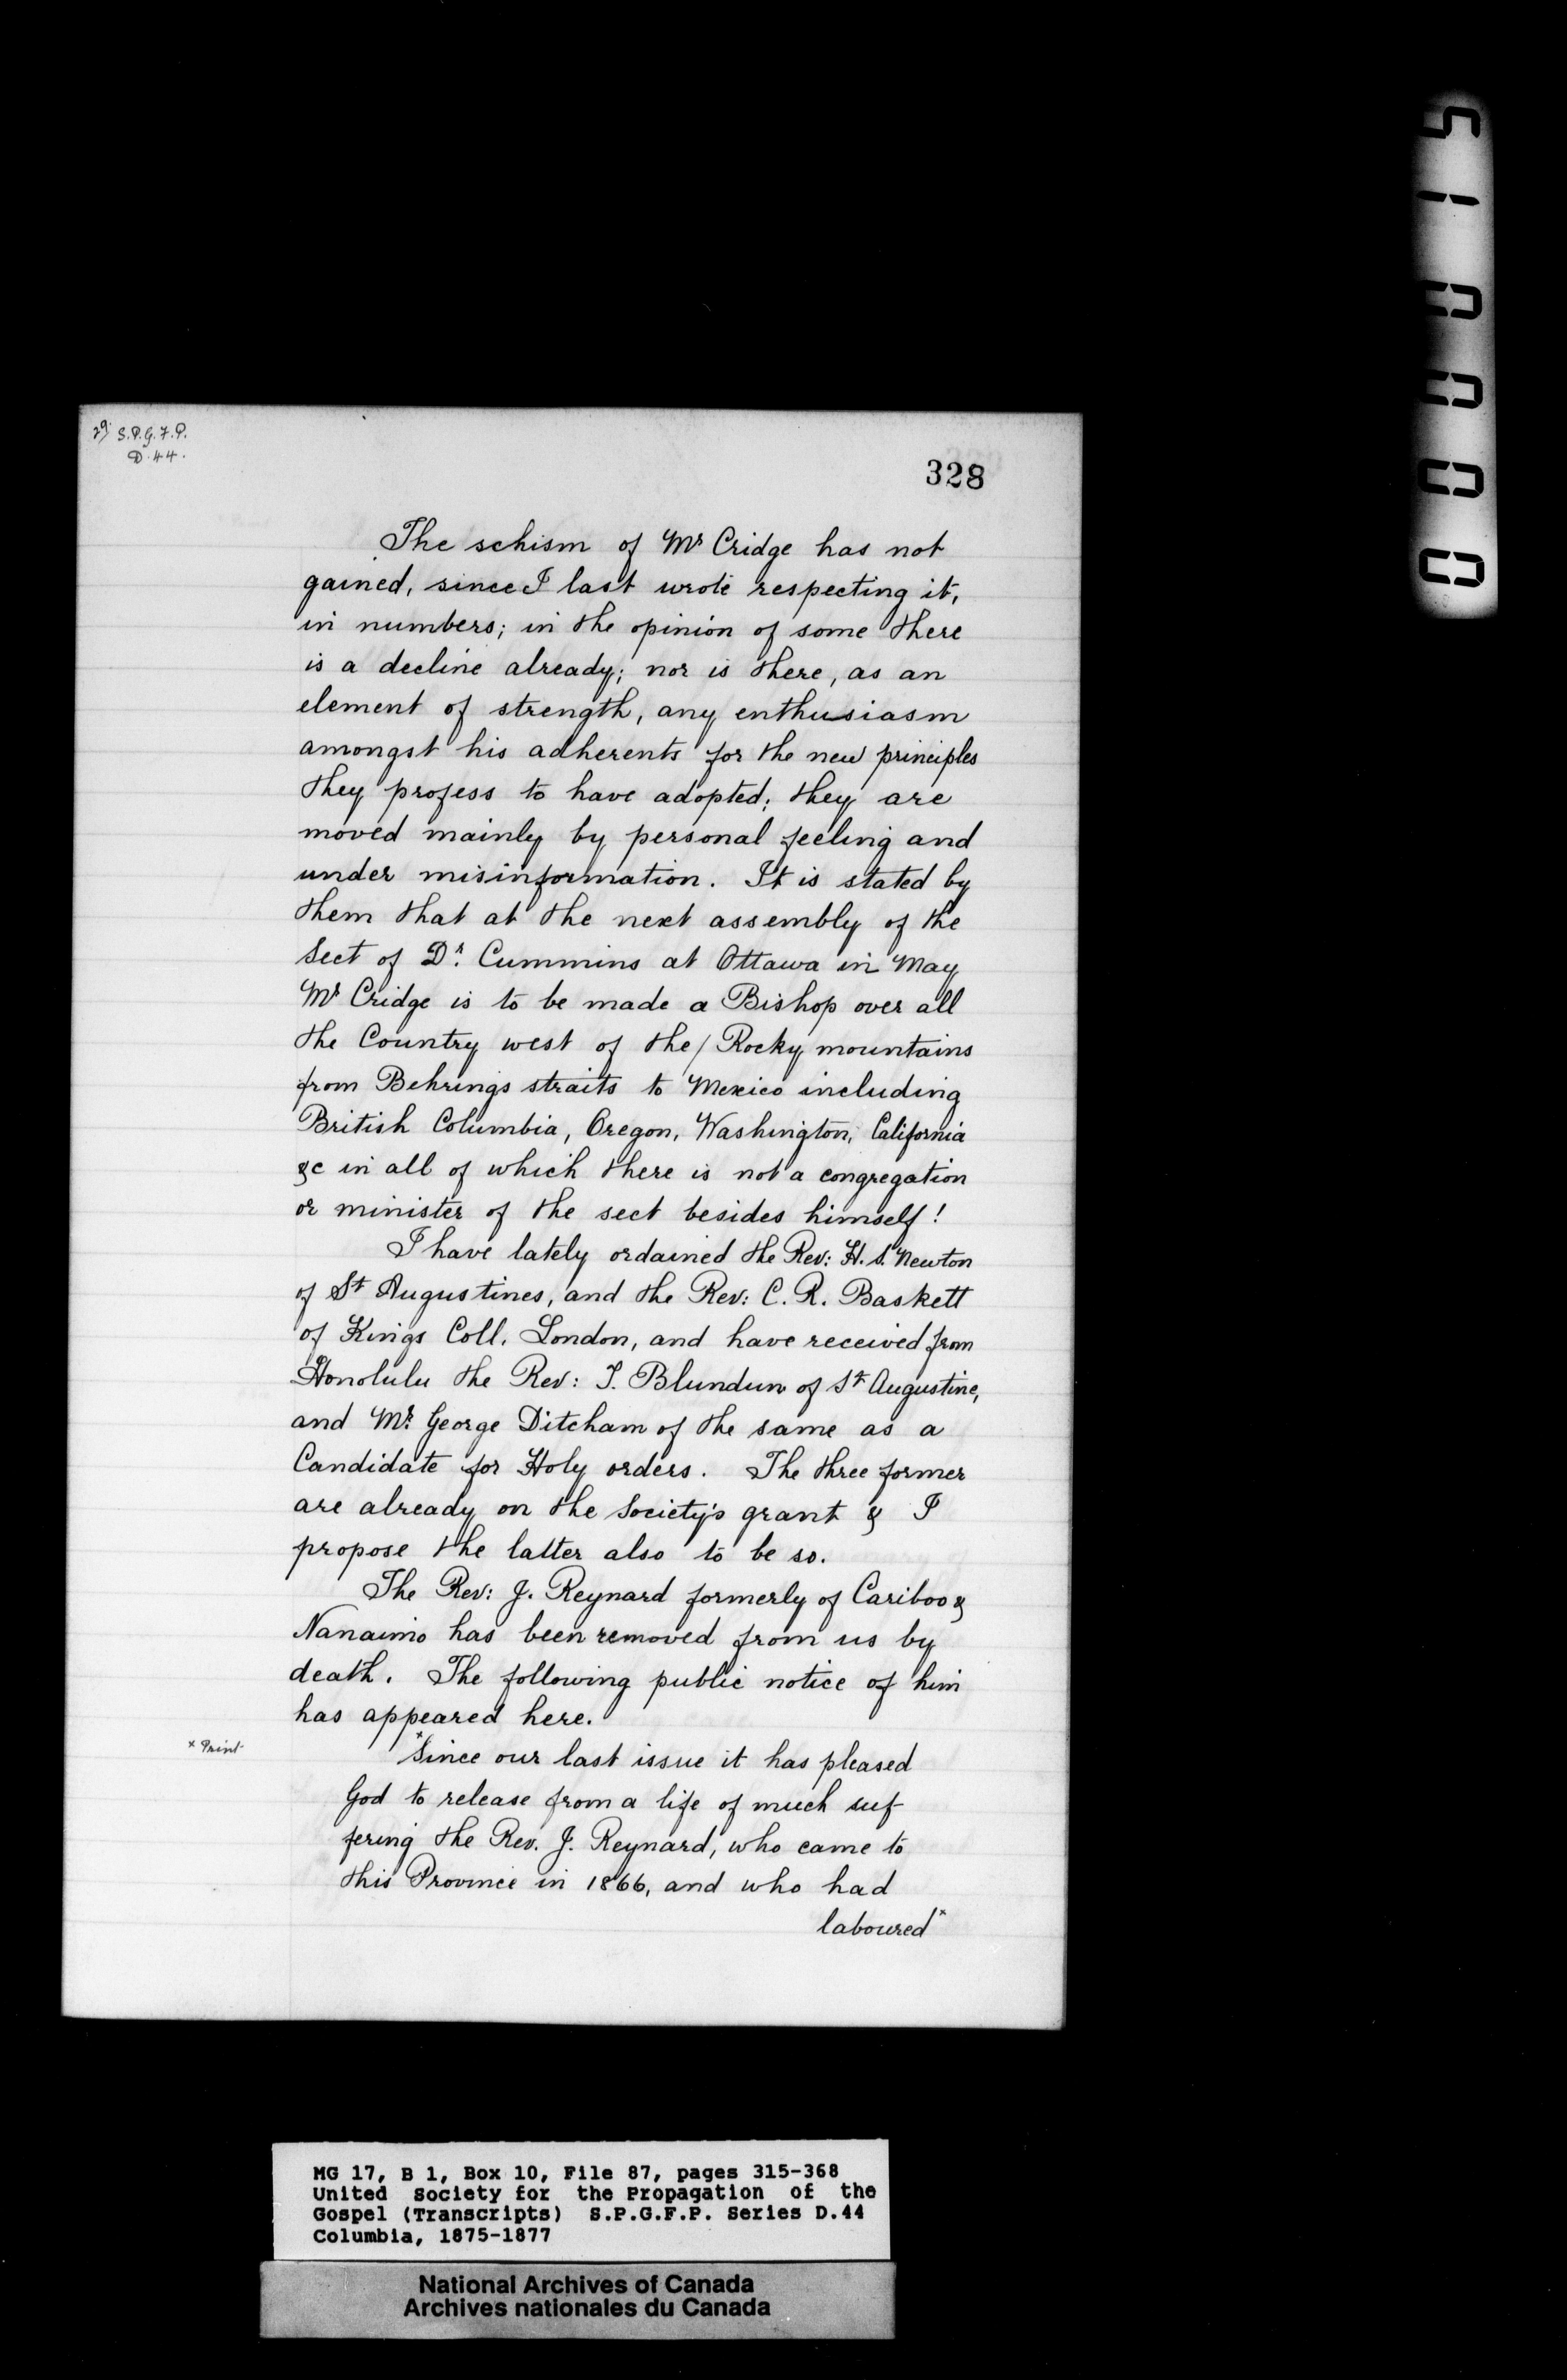 29. S.P.G.F.P.
D.44.
328
The schism of Mr Cridge has not
gained, since I last wrote respecting it,
in numbers; in the opinion of some there
is a decline already; nor is there, as an
element of strength, any enthusiasm
amongst his adherents for the new principles
they profess to have adopted; they are
moved mainly by personal feeling and
under misinformation. It is stated by
them that at the next assembly of the
Sect of Dr. Cummins at Ottawa in May
Mr Cridge is to be made a Bishop over all
the Country west of the / Rocky mountains
from Behrings straits to Mexico including
British Columbia, Oregon, Washington, California
&c in all of which there is not a congregation
or minister of the sect besides himself!
I have lately ordained the Rev: H. S. Newton
of St Augustines, and the Rev: C. R. Baskett
of Kings Coll. London, and have received from
Honolulu the Rev: T. Blundun of St Augustine,
and Mr. George Ditcham of the same as a
Candidate for Holy orders. The three former
are already on the Society's grant & I
propose the latter also to be so.
The Rev: J. Reynard formerly of Cariboo &
Nanaimo has been removed from us by
death. The following public notice of him
has appeared here.
x Print
xSince our last issue it has pleased
God to release from a life of much suf
fering the Rev. J. Reynard, who came to
this Province in 1866, and who had
labouredx
MG 17, B 1, Box 10, File 87, pages 315-368
United Society for the Propagation of the
Gospel (Transcripts) S.P.G.F.P. Series D.44
Columbia, 1875-1877
National Archives of Canada
Archives nationales du Canada
000015